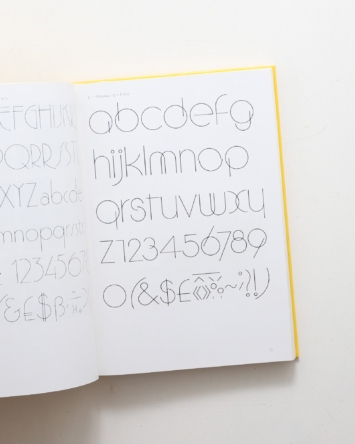 EFGHIJK
PQRRSST
XYZabcde
mnopqrst
1234567
&£$ß
abcdefg
hijklmnop
qrstuvwxy
z123456789
0(&$£《》%~;?!)